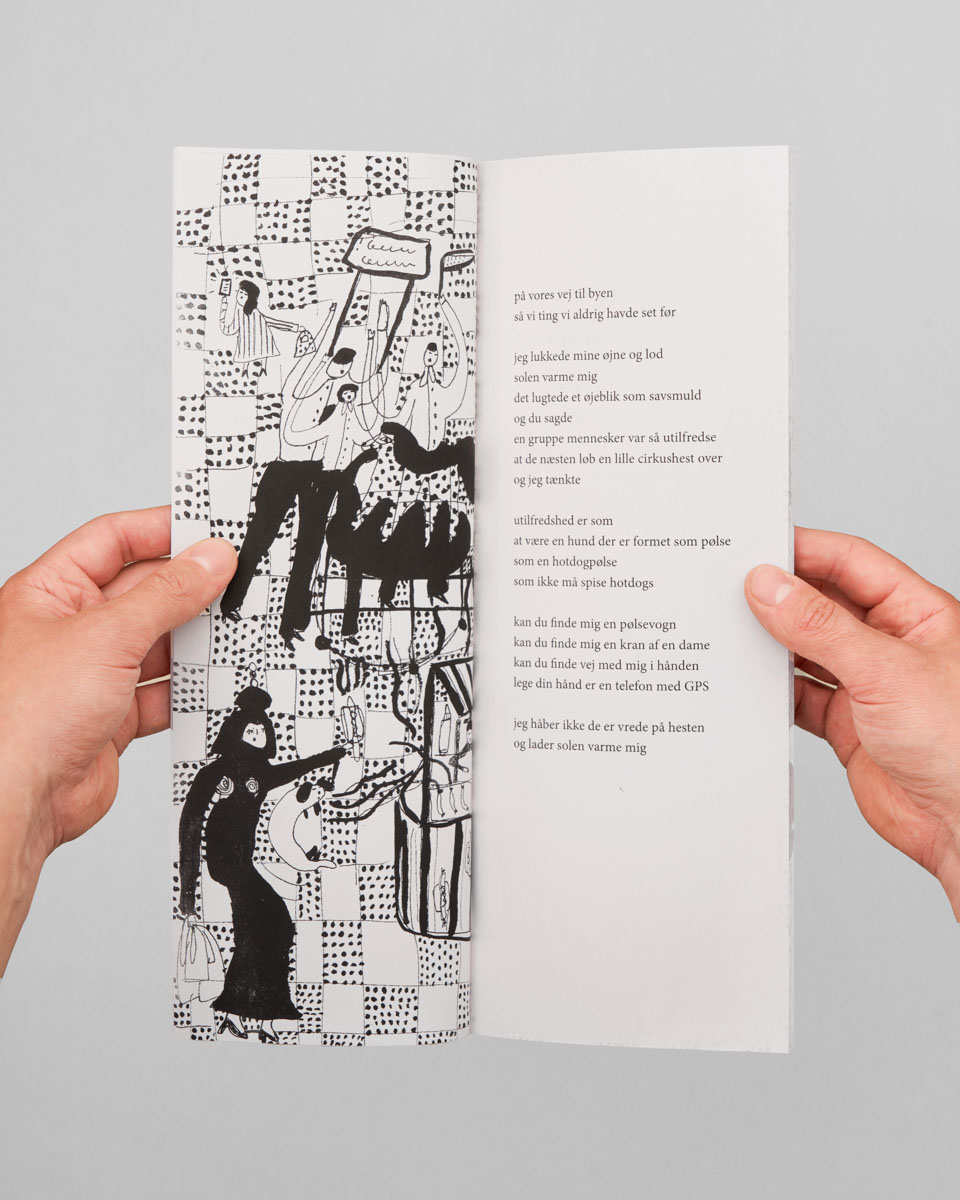 på vores vej til byen
så vi ting vi aldrig havde set før
jeg lukkede mine øjne og lod
solen varme mig
det lugtede et øjeblik som savsmuld
og du sagde
en gruppe mennesker var så utilfredse
at de næsten løb en lille cirkushest over
og jeg tænkte
utilfredshed er som
at være en hund der er formet som pølse
som en hotdogpølse
som ikke må spise hotdogs
kan du finde mig en pølsevogn
kan du finde mig en kran af en dame
kan du finde vej med mig i hånden
lege din hånd er en telefon med GPS
jeg håber ikke de er vrede på hesten
og lader solen varme mig